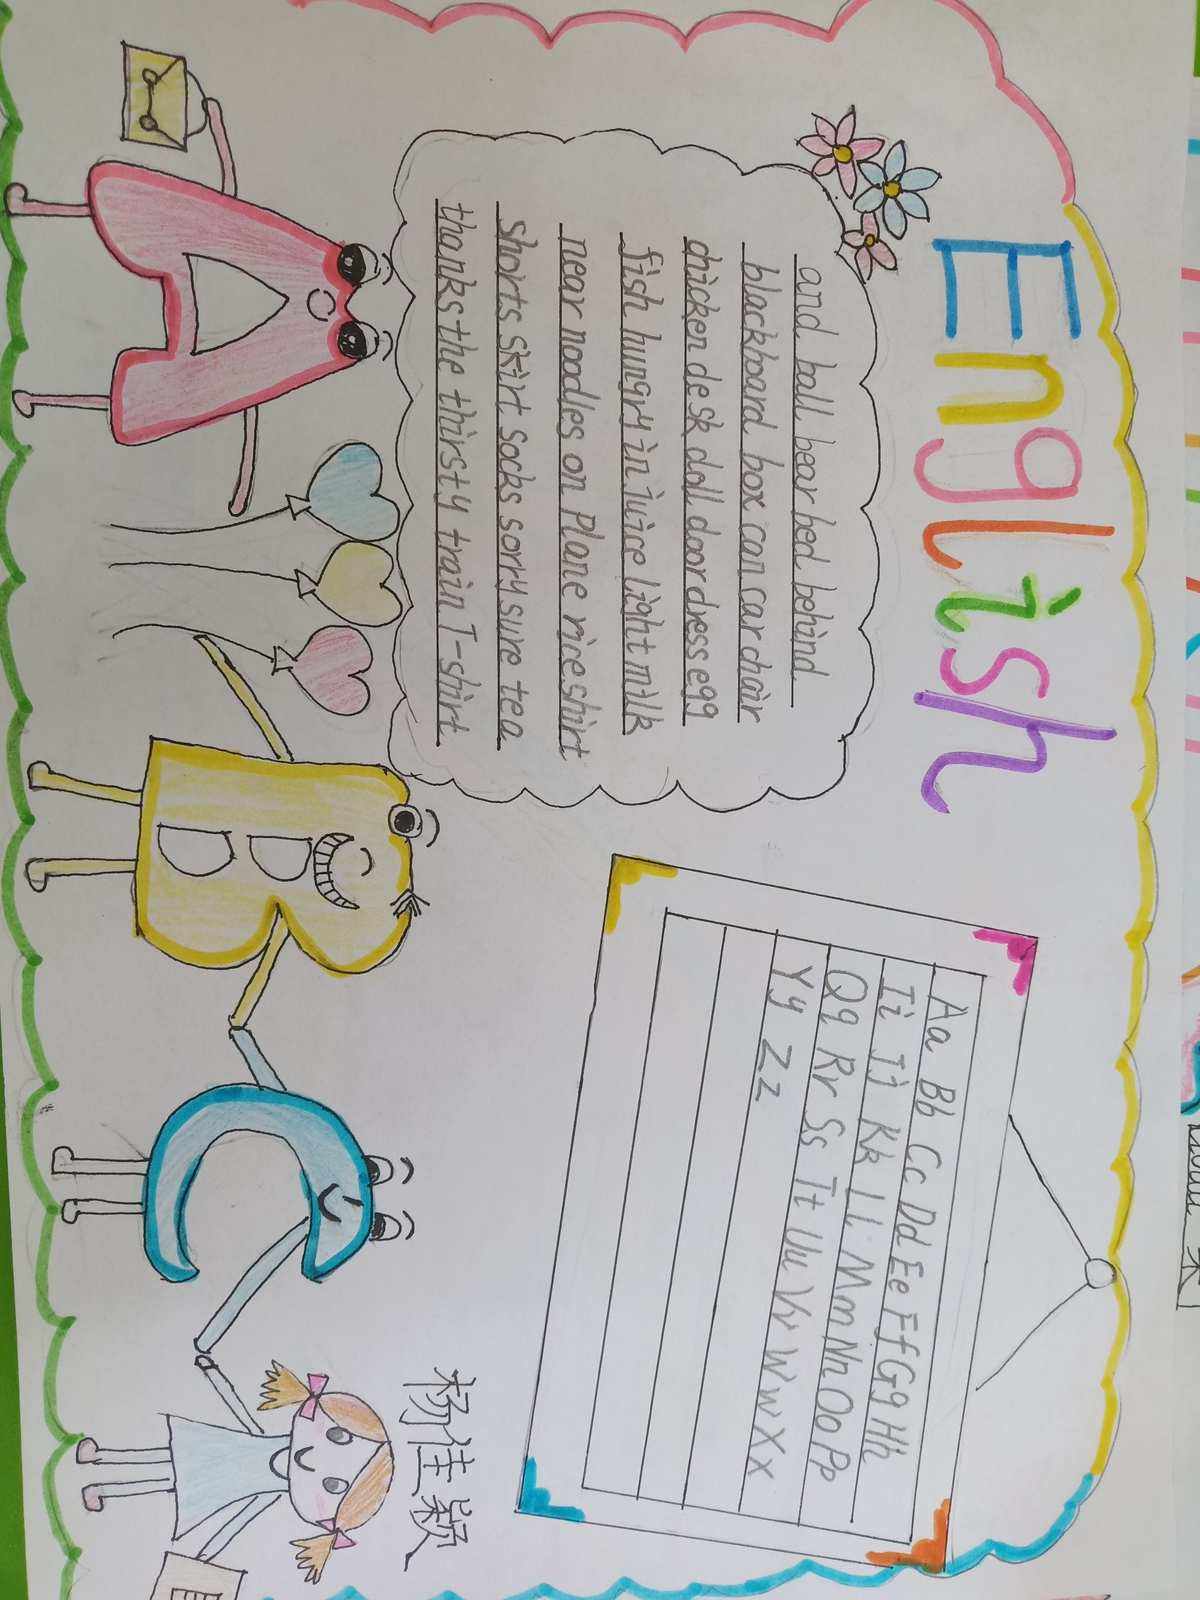 English
and ball bear bed behind
blackboard box can car chair
chicken desk doll door dress egg
fish hungry in juice light milk
near noodles on Plane rice shirt
shorts skirt socks sorry sure tea
thanks the thirsty train T-shirt
Aa Bb Cc Dd Ee Ff Gg Hh
Ii Jj Kk Ll Mm Nn Oo Pp
Qq Rr Ss Tt Uu Vv Ww Xx
Yy Zz
A
B
C
杨佳颖